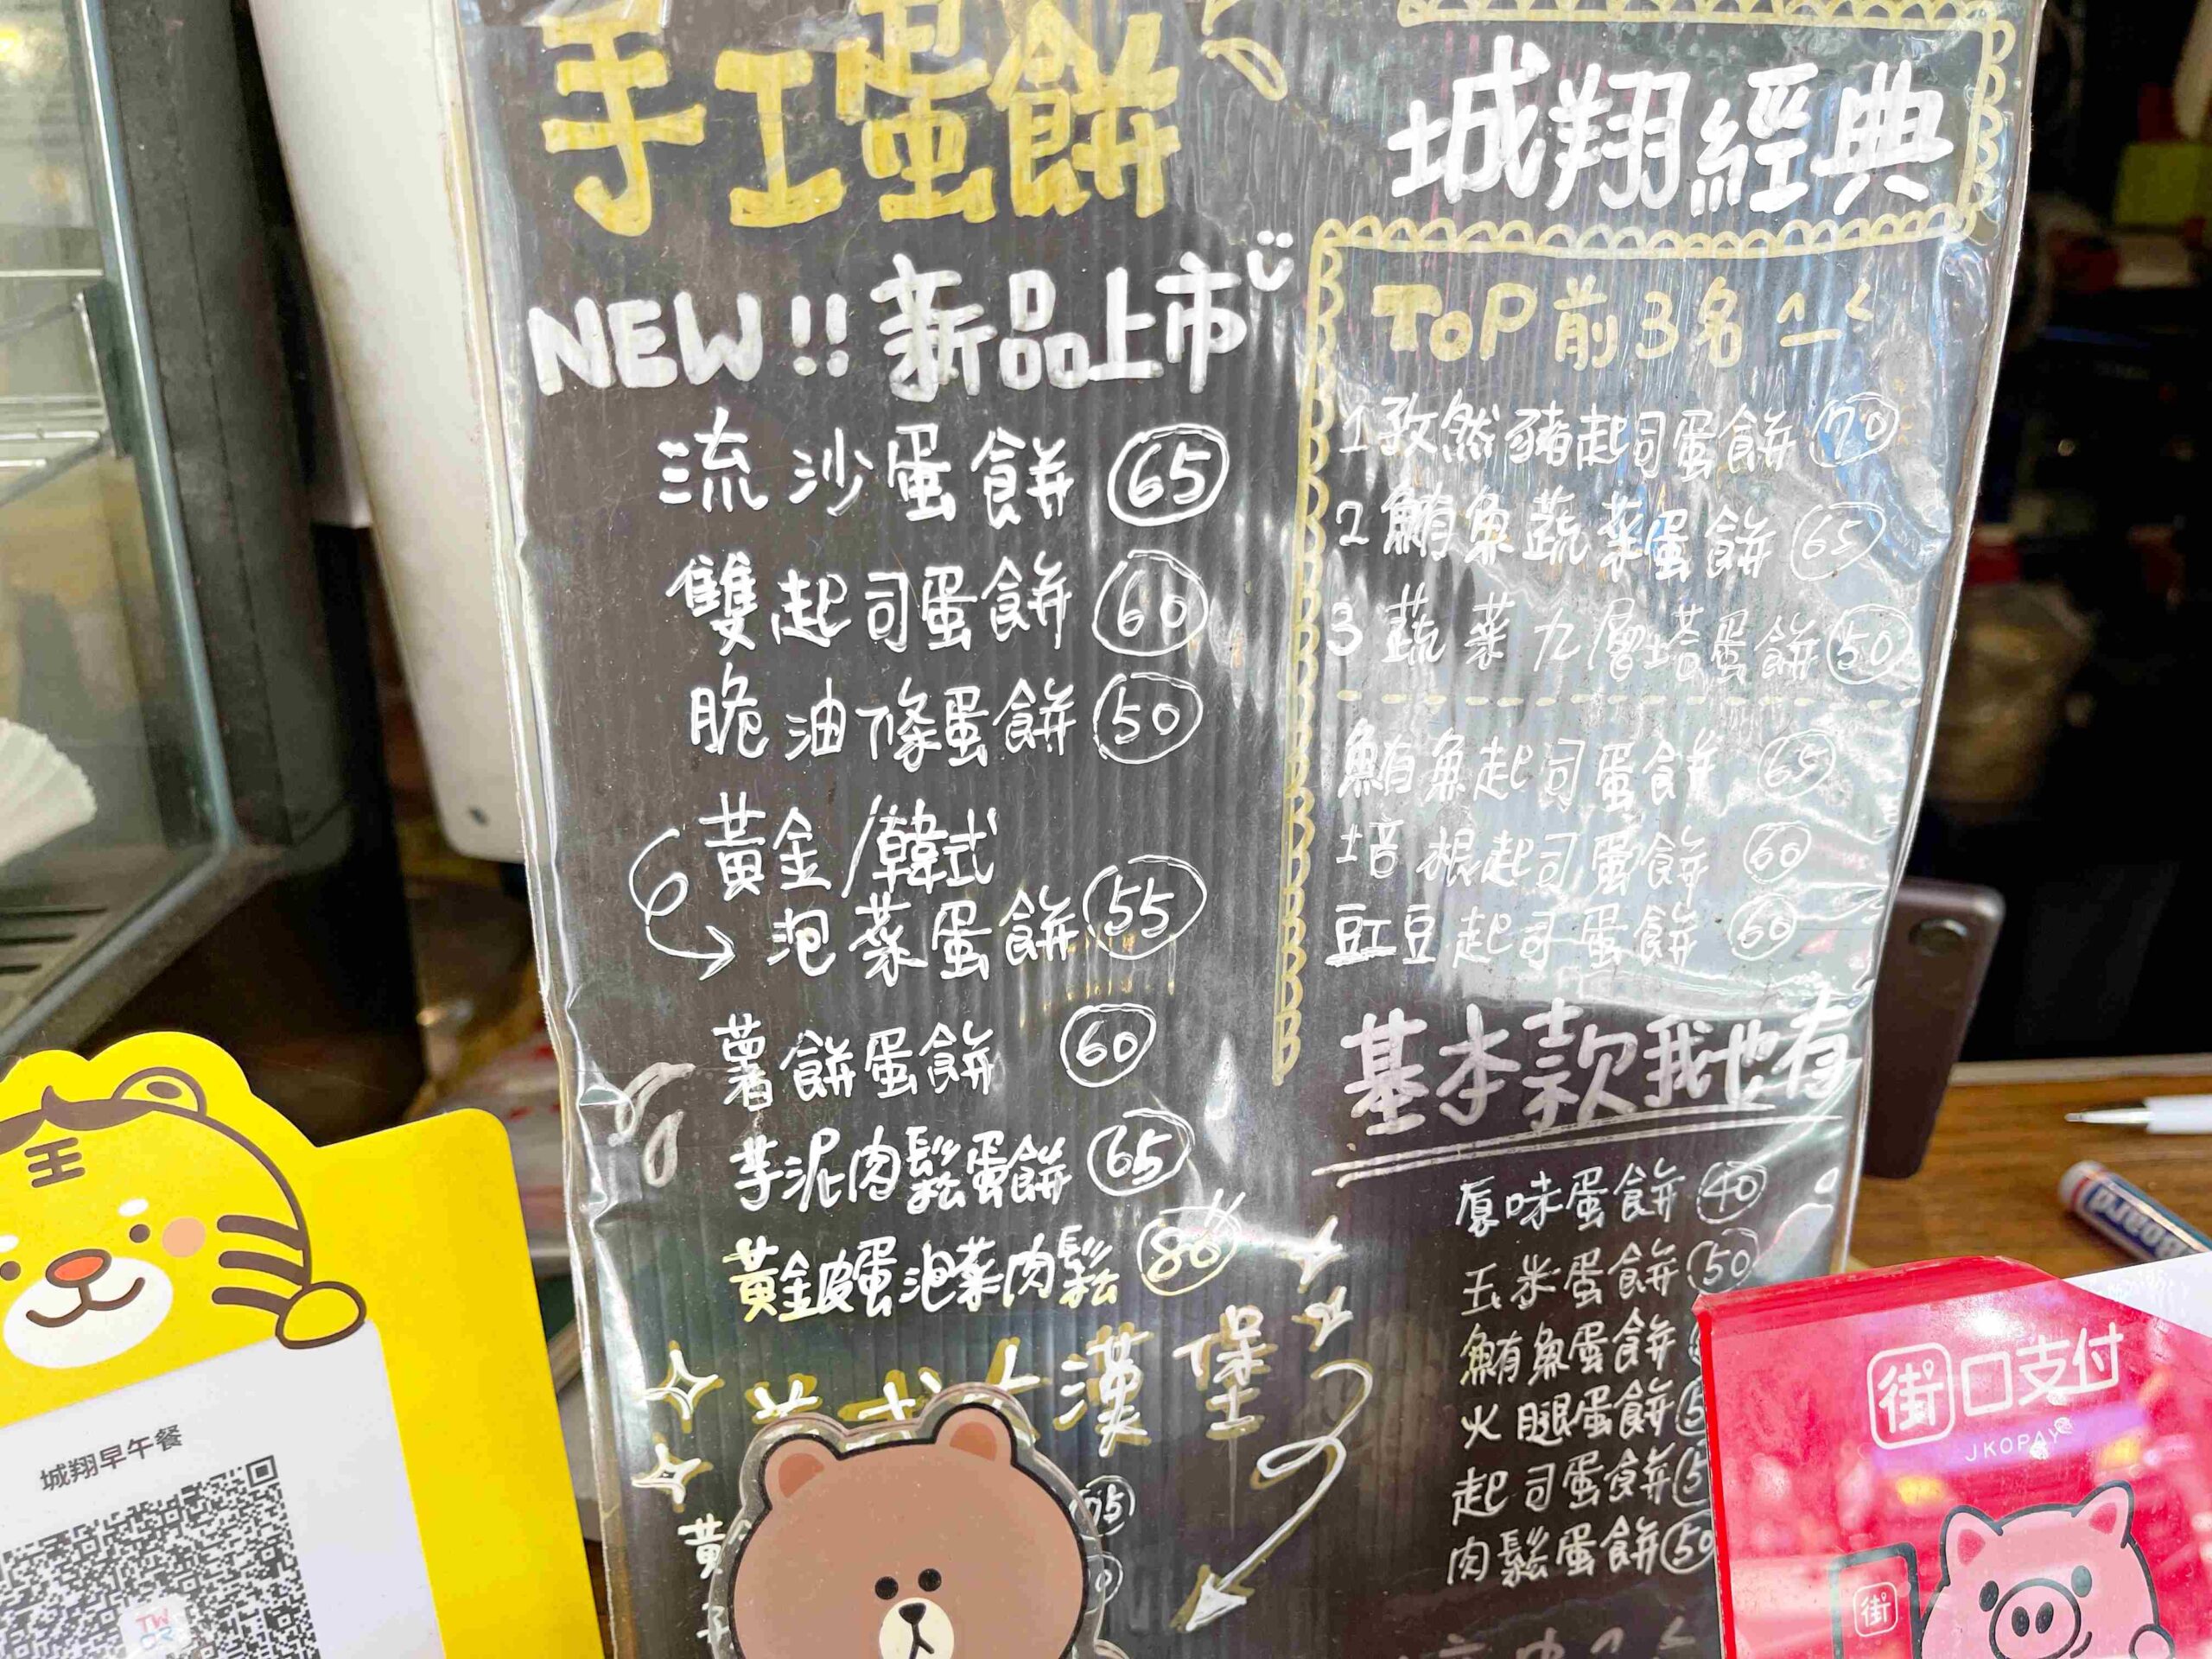 手工蛋餅
NEW!! 新品上市
流沙蛋餅 65
雙起司蛋餅 60
脆油條蛋餅 50
黃金/韓式
泡菜蛋餅 55
薯餅蛋餅 60
芋泥肉鬆蛋餅 65
黃金皮蛋泡菜肉鬆 80
漢堡
黃
城翔經典
TOP前3名
1 孜然豬起司蛋餅 70
2 鮪魚蔬菜蛋餅 65
3 蔬菜九層塔蛋餅 50
鮪魚起司蛋餅 65
培根起司蛋餅 60
豇豆起司蛋餅 60
基本款我也有
原味蛋餅 40
玉米蛋餅 50
鮪魚蛋餅
火腿蛋餅 5
起司蛋餅 5
肉鬆蛋餅 50
王
城翔早午餐
TW
CR
街口支付
JKOPAY
街
Board